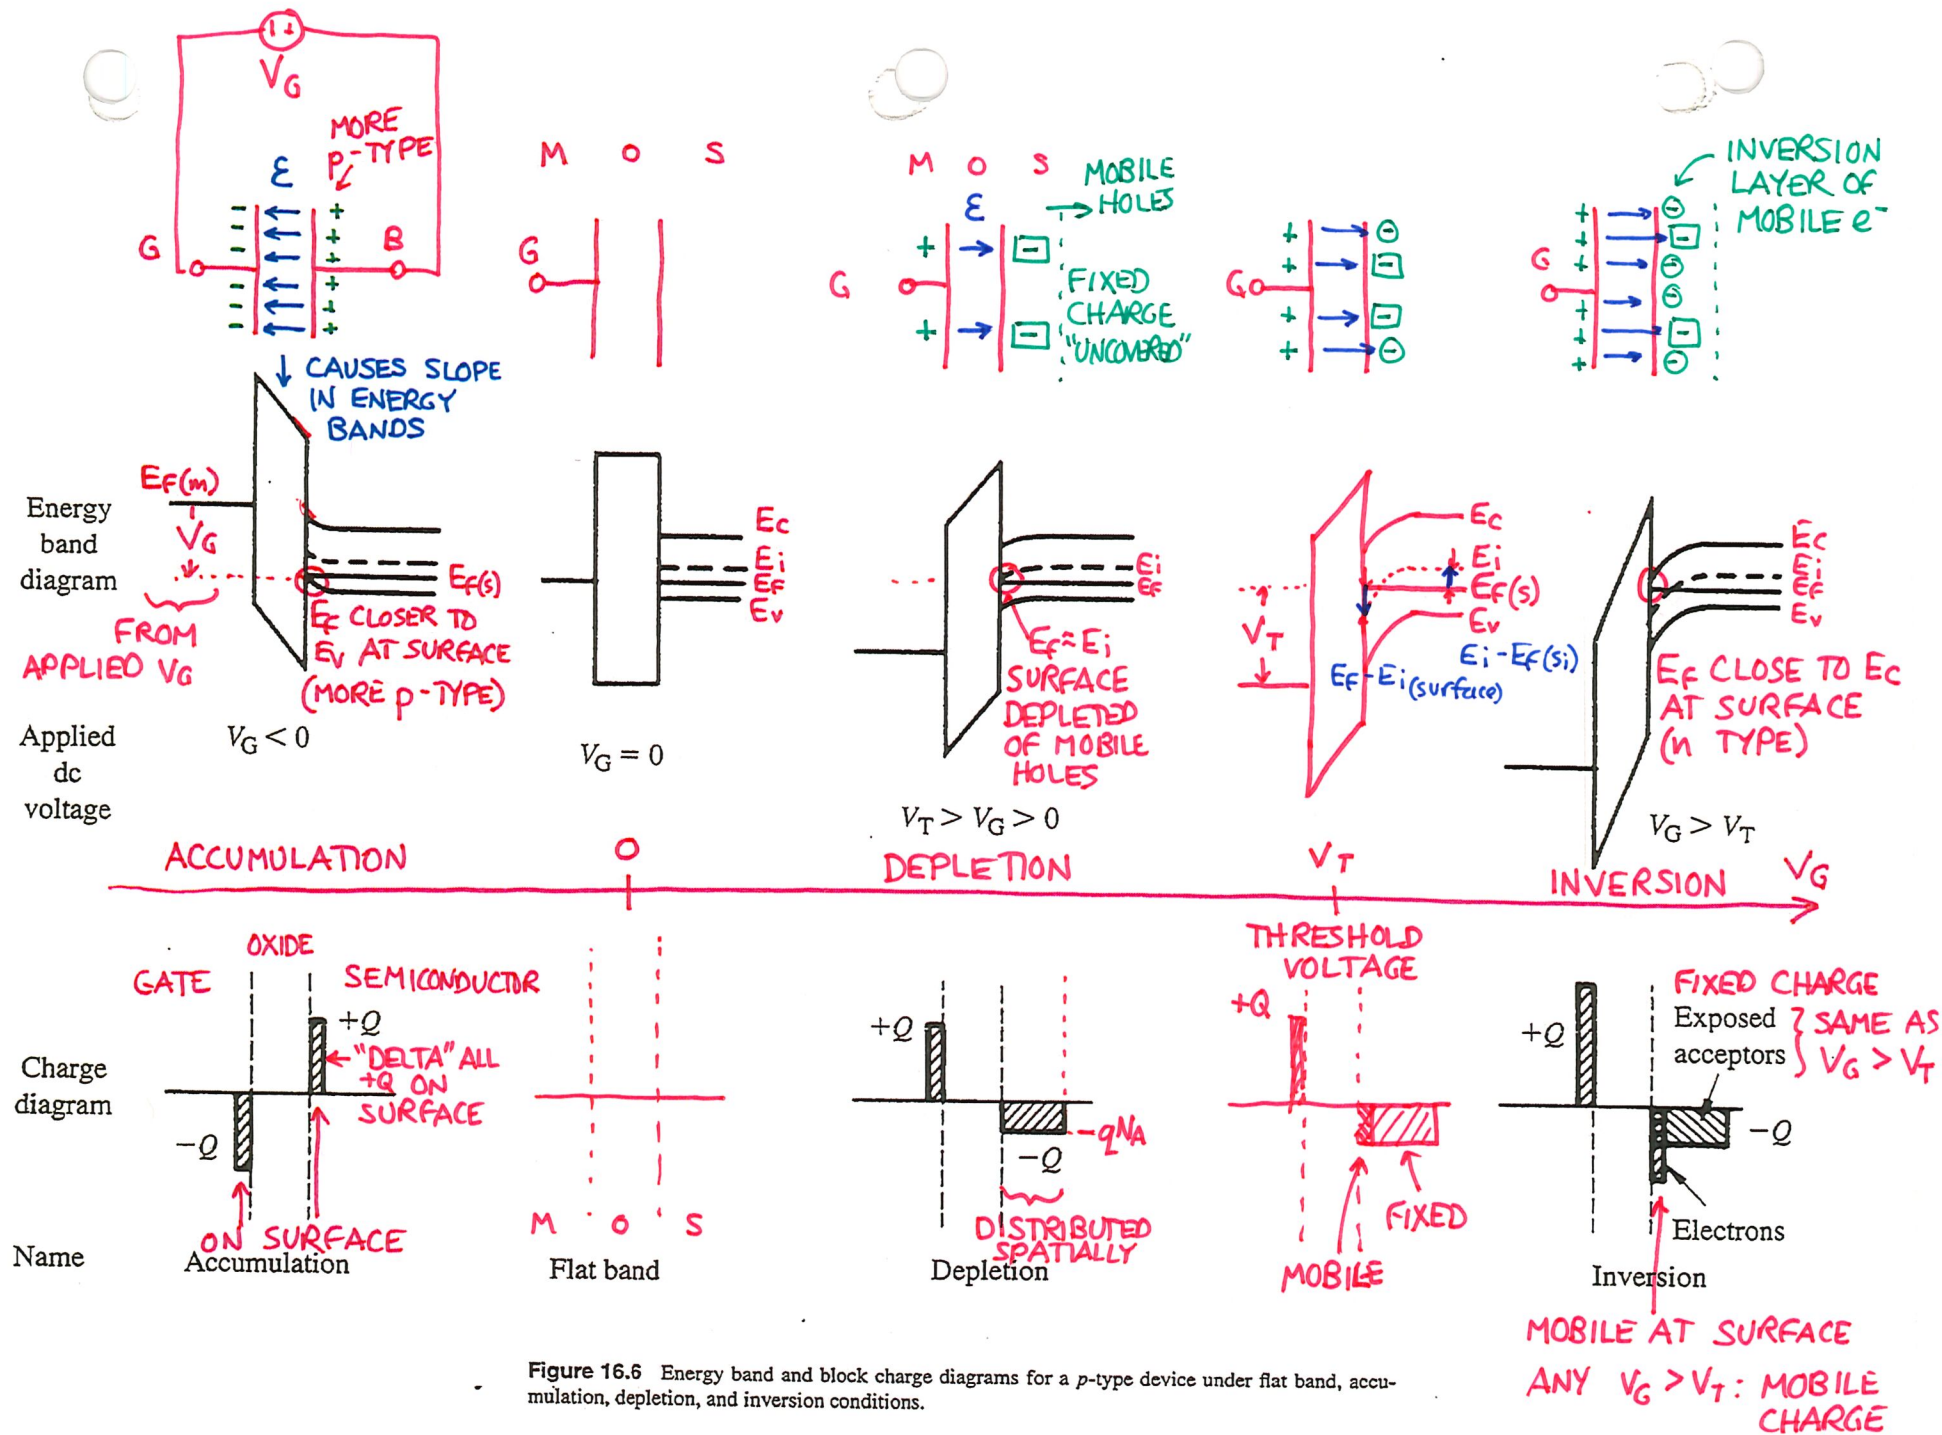 VG
MORE
p-TYPE
ε
G
B
- - - - - -
+ + + + + +
CAUSES SLOPE
IN ENERGY
BANDS
M O S
G
M O S
ε
MOBILE
HOLES
G
+ -
+ -
FIXED
CHARGE
"UNCOVERED"
G
+ -
+ -
+ -
+ -
INVERSION
LAYER OF
MOBILE e-
G
+ -
+ -
+ -
+ -
+ -
+ -
Energy
band
diagram
EF(m)
VG
FROM
APPLIED VG
EF(s)
EF CLOSER TO
EV AT SURFACE
(MORE p-TYPE)
Ec
Ei
EF
Ev
Ei
EF
EF≈Ei
SURFACE
DEPLETED
OF MOBILE
HOLES
VT
Ec
Ei
EF(s)
Ev
Ei-EF(si)
EF-Ei(surface)
Ec
Ei
EF
Ev
EF CLOSE TO EC
AT SURFACE
(n TYPE)
Applied
dc
voltage
VG < 0
VG = 0
VT > VG > 0
VG > VT
ACCUMULATION
O
DEPLETION
VT
INVERSION
VG
THRESHOLD
VOLTAGE
Charge
diagram
GATE
OXIDE
SEMICONDUCTOR
+Q
"DELTA" ALL
+Q ON
SURFACE
-Q
ON SURFACE
M O S
+Q
-qNA
-Q
DISTRIBUTED
SPATIALLY
+Q
MOBILE
FIXED
FIXED CHARGE
+Q
Exposed
acceptors
SAME AS
VG > VT
-Q
Electrons
Name
Accumulation
Flat band
Depletion
Inversion
MOBILE AT SURFACE
ANY VG > VT: MOBILE
CHARGE
Figure 16.6 Energy band and block charge diagrams for a p-type device under flat band, accu-
mulation, depletion, and inversion conditions.